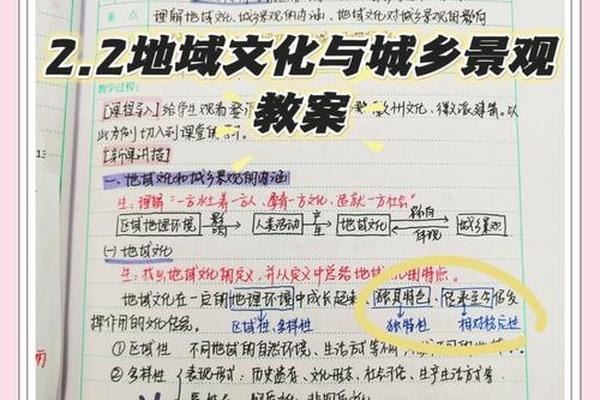 重点 理解地域文化、城乡景观的内涵、地域文化对城乡景观的影响
2.2地域文化与城乡景观
教案
教学过程:
[课程导入] 给学生观看 徽州文化、徽派建筑。以
此为例切入到课堂
[新课讲授]
一、地域文化和城乡景观的内涵
生:理解"一方水土养一方人、孕育一方文化、造就一方社会"
区域地理环境 影响 人类活动 产生 地域文化 体现 城乡景观
(一) 地域文化
生:找出地域文化的定义,并从定义中总结地域文化的特点。
地域文化在一定的地理环境中成长起来、独具特色、传承至今仍发
挥作用的文化传统。
区域性、多样性 独特性 相对稳定性
① 区域性 不同地域的自然环境、生活方式等不
② 多样性 表现形式:历史遗存、文化形态、社会习俗、生产生活方式等